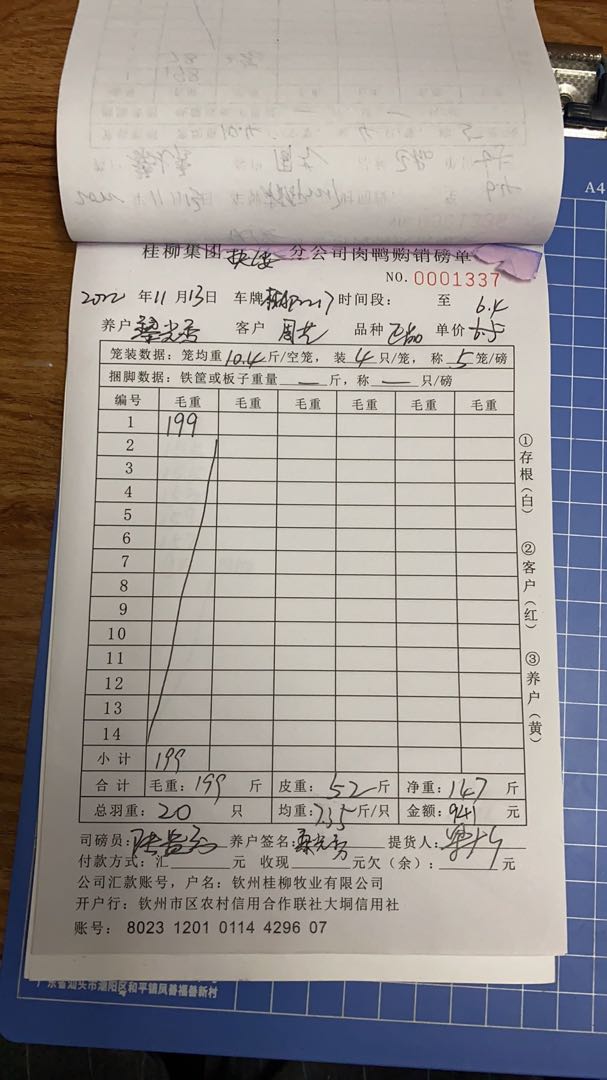 桂柳集团 分公司肉鸭购销磅单
NO. 0001337
2022 年 11 月 13 日 车牌 时间段: 至 6.4
养户 客户 周 品种 正品 单价 6.5
笼装数据: 笼均重 10.4 斤/空笼, 装 4 只/笼, 称 5 笼/磅
捆脚数据: 铁筐或板子重量 — 斤, 称 — 只/磅
编号 毛重 毛重 毛重 毛重 毛重 毛重
1 199
2
3
4
5
6
7
8
9
10
11
12
13
14
小计 199
合计 毛重: 199 斤 皮重: 52 斤 净重: 147 斤
总羽重: 20 只 均重: 7.35 斤/只 金额: 941 元
司磅员: 养户签名: 提货人:
付款方式: 汇 元 收现 元欠(余): 元
公司汇款账号, 户名: 钦州桂柳牧业有限公司
开户行: 钦州市区农村信用合作联社大垌信用社
账号: 8023 1201 0114 4296 07
①存根(白)
②客户(红)
③养户(黄)
A4
广东省汕头市潮阳区和平镇凤善福善新村